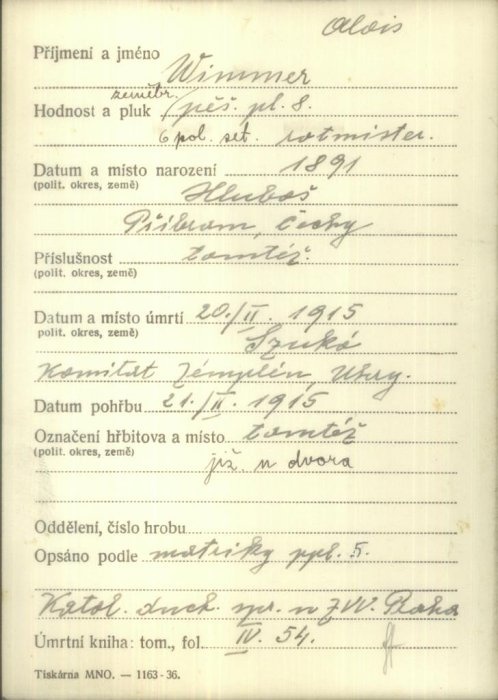 Alois
Příjmení a jméno Wimmer
zeměbr.
Hodnost a pluk pěš. pl. 8.
6 pol. set. rotmister.
Datum a místo narození 1891
(polit. okres, země) Hluboš
Příbram, Čechy
Příslušnost tomtéž.
(polit. okres, země)
Datum a místo úmrtí 20./II. 1915
polit. okres, země) Szukó
Komitát Zémplén, Uhry.
Datum pohřbu 21./II. 1915
Označení hřbitova a místo tomtéž
(polit. okres, země)
již. u dvora
Oddělení, číslo hrobu
Opsáno podle matriky ppl. 5.
Katol. duch. spr. u ZVV. Praha
Úmrtní kniha: tom., fol. IV. 54.
Tiskárna MNO. — 1163-36.